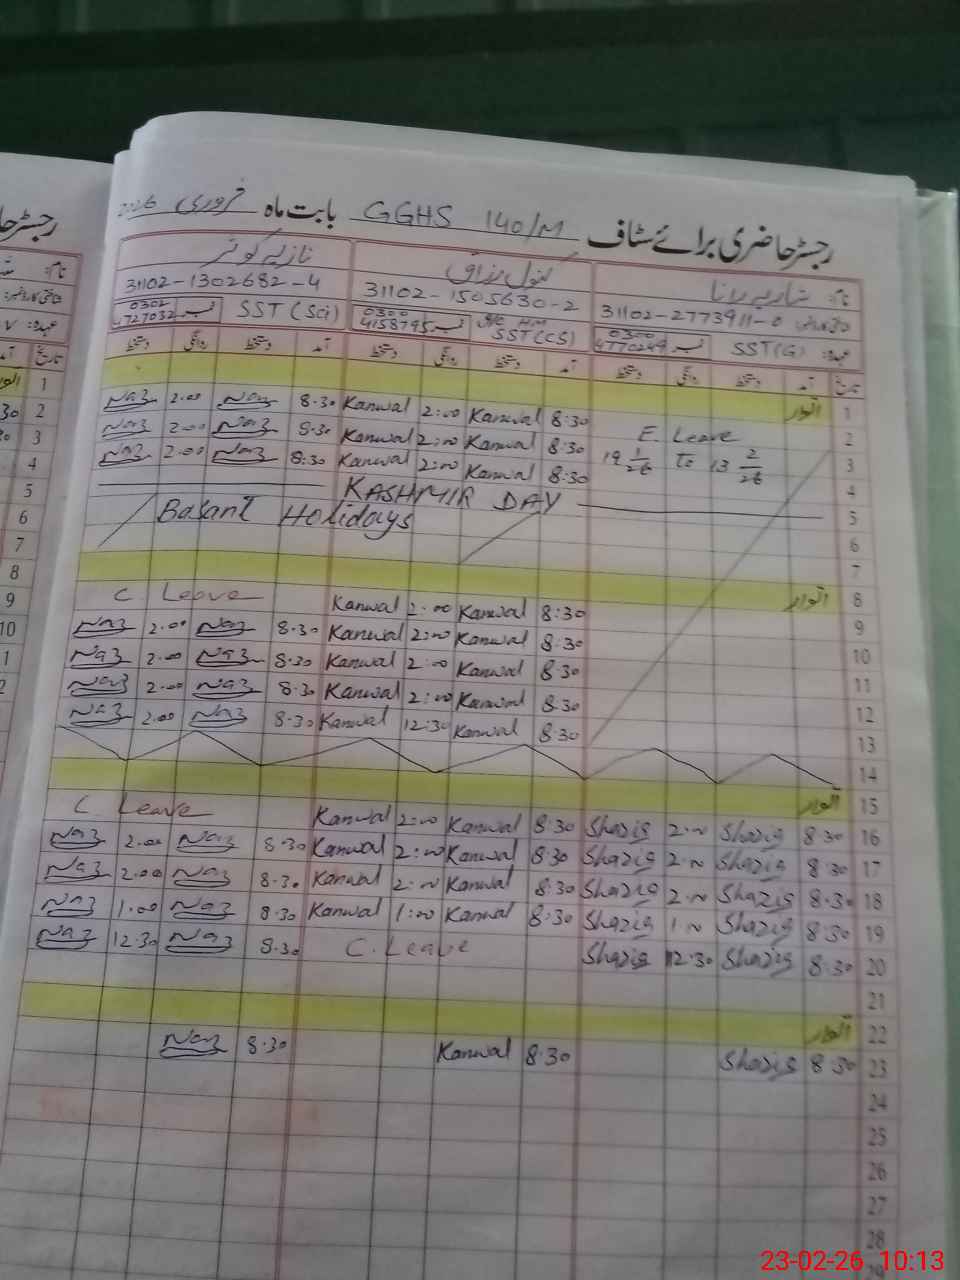 رجسٹر حاضری برائے سٹاف GGHS 140/M بابت ماہ فروری 2026
نام: شازیہ رانا کنول رزاق نازیہ کوثر
31102-2773911-0 31102-1505630-2 31102-1302682-4
عہدہ: SST(G) نمبر 0300 4770249 I/C HM SST(CS) نمبر 0300 4158795 SST(Sci) نمبر 0302 4727032
تاریخ آمد دستخط روانگی دستخط آمد دستخط روانگی دستخط آمد دستخط روانگی دستخط
1 اتوار
2 E. Leave 8:30 Kanwal 2:00 Kanwal 8.30 Naz 2.00 Naz
3 19 1/26 To 13 2/26 8:30 Kanwal 2:00 Kanwal 8.30 Naz 2.00 Naz
4 8:30 Kanwal 2:00 Kanwal 8:30 Naz 2.00 Naz
5 KASHMIR DAY
6 Basant Holidays
7
8 اتوار
9 8:30 Kanwal 2:00 Kanwal C Leave
10 8:30 Kanwal 2:00 Kanwal 8.30 Naz 2.00 Naz
11 8:30 Kanwal 2:00 Kanwal 8.30 Naz 2.00 Naz
12 8:30 Kanwal 2:00 Kanwal 8.30 Naz 2.00 Naz
13 8:30 Kanwal 12:30 Kanwal 8.30 Naz 2.00 Naz
14
15 اتوار
16 8:30 Shazia 2:00 Shazia 8:30 Kanwal 2:00 Kanwal C Leave
17 8:30 Shazia 2:00 Shazia 8:30 Kanwal 2:00 Kanwal 8.30 Naz 2.00 Naz
18 8:30 Shazia 2:00 Shazia 8:30 Kanwal 2:00 Kanwal 8.30 Naz 2.00 Naz
19 8:30 Shazia 1:00 Shazia 8:30 Kanwal 1:00 Kanwal 8.30 Naz 1.00 Naz
20 8:30 Shazia 12:30 Shazia C. Leave 8.30 Naz 12.30 Naz
21
22 اتوار
23 8:30 Shazia 8:30 Kanwal 8.30 Naz
24
25
26
27
28
29
23-02-26 10:13